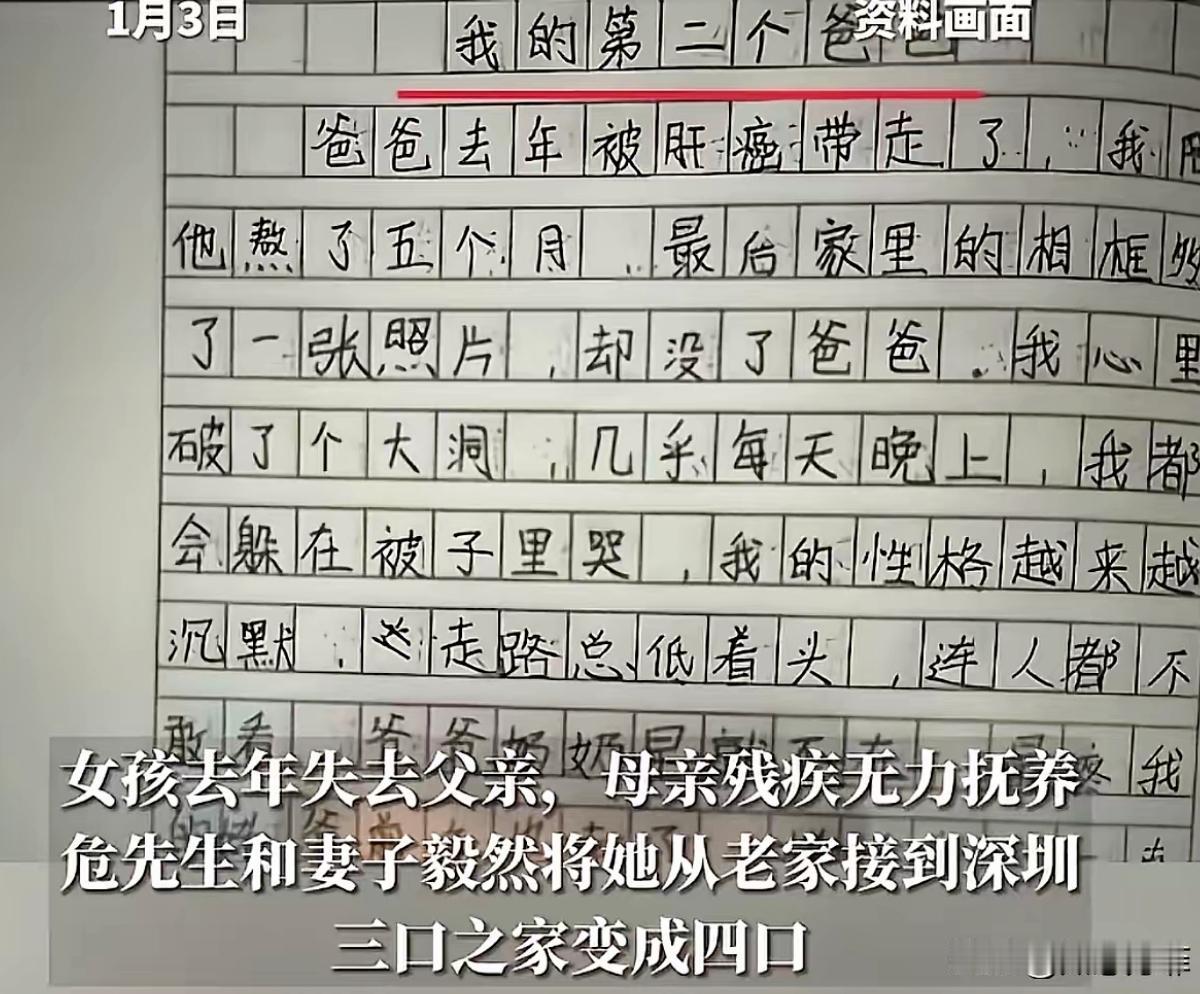 1月3日
资料画面
我的第二个爸爸
爸爸去年被肝癌带走了,我陪
他熬了五个月,最后家里的相框
了一张照片,却没了爸爸。我心里
破了个大洞,几乎每天晚上,我都
会躲在被子里哭,我的性格越来越
沉默,走路总低着头,连人都不
敢看 爷爷奶奶早就不在 疼我
女孩去年失去父亲,母亲残疾无力抚养
危先生和妻子毅然将她从老家接到深圳
三口之家变成四口